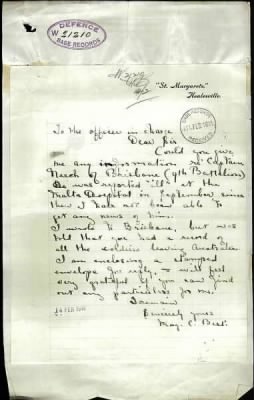 DEFENCE
W 51210
BASE RECORDS
"St. Margarets,"
Healesville.
To the officer in charge
Dear Sir
Could you give
me any information re Captain
of Brisbane (9th Battalion)
He was reported "ill" at the
Malta Hospital in September since
then I have not been able to
get any news of him.
I wrote to Brisbane, but was
told that you had a record of
all the soldiers leaving Australia.
I am enclosing a stamped
envelope for reply, & will feel
very grateful if you can find
out any particulars for me.
I remain
Sincerely yours
May C.
14 FEB 1916